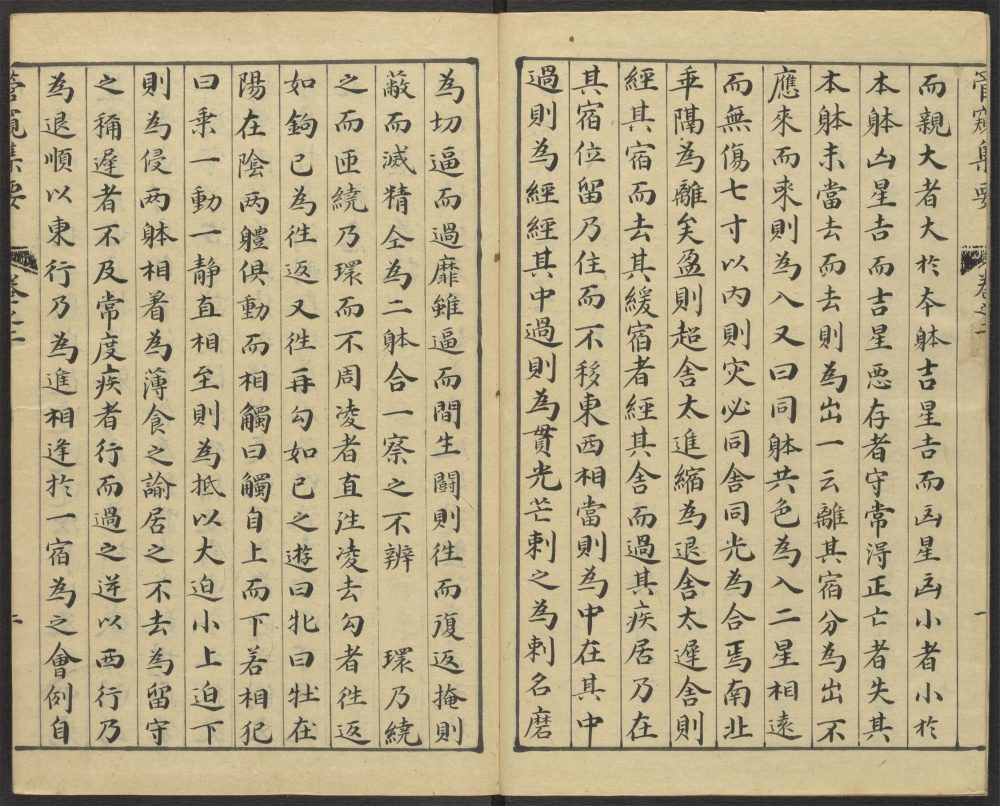 而親大者大於本躰吉星吉而凶星凶小者小於
本躰凶星吉而吉星悪存者守常淂正亡者失其
本躰未當去而去則為出一云離其宿分為出不
應来而来則為入又曰同躰共色為入二星相遠
而無傷七寸以内則灾必同舎同光為合焉南北
乖隔為離矣盈則超舎太進縮為退舎太遲舎則
經其宿而去其緩宿者經其舎而過其疾居乃在
其宿位留乃住而不移東西相當則為中在其中
過則為經經其中過則為貫光芒刺之為刺名磨
為切逼而過靡雖逼而間生闘則徃而復返掩則
蔽而滅精仝為二躰合一察之不辨　環乃繞
之而匝繞乃環而不周凌者直徃凌去勾者徃返
如鉤已為徃返又徃再勾如已之遊曰牝曰牡在
陽在陰兩軆俱動而相觸曰觸自上而下若相犯
曰乗一動一静直相至則為抵以大迫小上迫下
則為侵兩躰相着為薄食之諭居之不去為留守
之稱遲者不及常度疾者行而過之逆以西行乃
為退順以東行乃為進相逢於一宿為之會例自
卷之二